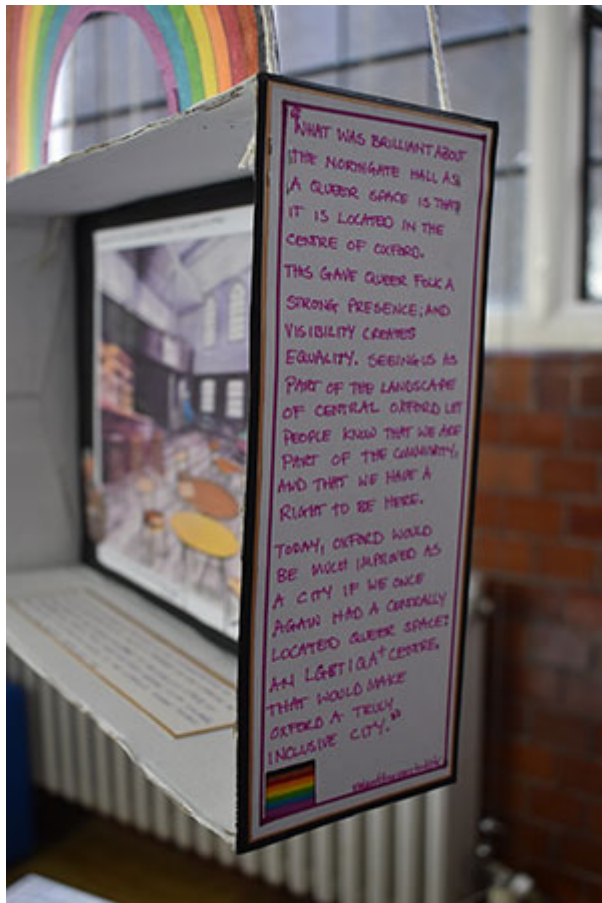 "WHAT WAS BRILLIANT ABOUT
THE NORTHGATE HALL AS
A QUEER SPACE IS THAT
IT IS LOCATED IN THE
CENTRE OF OXFORD.
THIS GAVE QUEER FOLK A
STRONG PRESENCE; AND
VISIBILITY CREATES
EQUALITY. SEEING US AS
PART OF THE LANDSCAPE
OF CENTRAL OXFORD LET
PEOPLE KNOW THAT WE ARE
PART OF THE COMMUNITY,
AND THAT WE HAVE A
RIGHT TO BE HERE.
TODAY, OXFORD WOULD
BE MUCH IMPROVED AS
A CITY IF WE ONCE
AGAIN HAD A CENTRALLY
LOCATED QUEER SPACE:
AN LGBTIQA+ CENTRE.
THAT WOULD MAKE
OXFORD A TRULY
INCLUSIVE CITY."